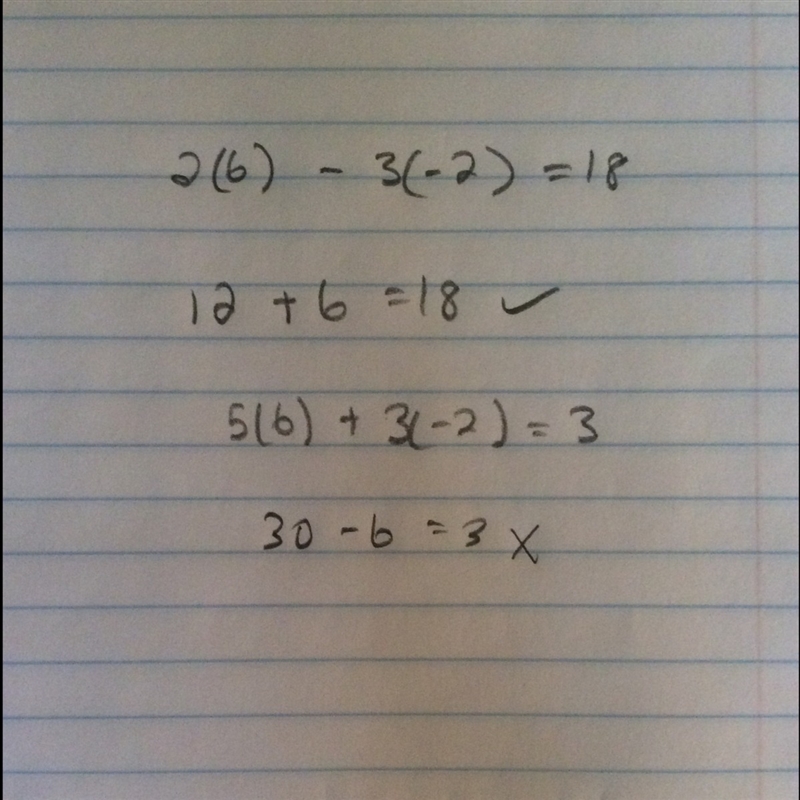 2(6) - 3(-2) = 18
12 + 6 = 18 ✓
5(6) + 3(-2) = 3
30 - 6 = 3 X